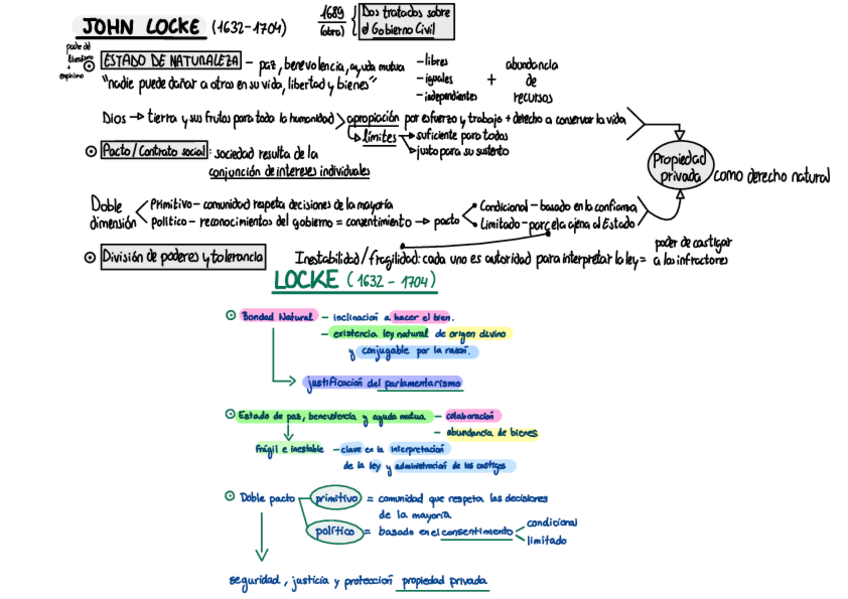 JOHN LOCKE (1632-1704)
1689 (obra) { Dos tratados sobre el Gobierno Civil
padre del liberalismo + empirismo
ESTADO DE NATURALEZA - paz, benevolencia, ayuda mutua
"nadie puede dañar a otros en su vida, libertad y bienes"
- libres
- iguales
- independientes
+ abundancia de recursos
Dios → tierra y sus frutos para toda la humanidad > apropiación por esfuerzo y trabajo + derecho a conservar la vida
límites → suficiente para todos
justo para su sustento
Propiedad privada como derecho natural
Pacto/Contrato social: sociedad resulta de la
conjunción de intereses individuales
Doble dimensión
Primitivo - comunidad respeta decisiones de la mayoría
político - reconocimientos del gobierno = consentimiento → pacto
Condicional - basado en la confianza
Limitado - parcela ajena al Estado
División de poderes y tolerancia
Inestabilidad/fragilidad: cada uno es autoridad para interpretar la ley = poder de castigar a los infractores
LOCKE (1632 - 1704)
Bondad Natural - inclinación a hacer el bien.
- existencia ley natural de origen divino
y conjugable por la razón.
justificación del parlamentarismo
Estado de paz, benevolencia y ayuda mutua - colaboración
- abundancia de bienes
frágil e inestable - clave en la interpretación
de la ley y administración de los castigos
Doble pacto
primitivo = comunidad que respeta las decisiones
de la mayoría
político = basado en el consentimiento
condicional
limitado
seguridad, justicia y protección propiedad privada